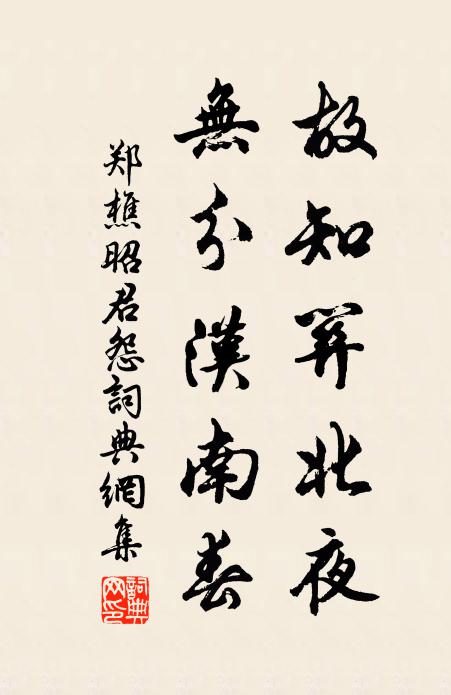 故知北夜
無分漢南春
郑樵昭君怨詞典網集
詞典网印